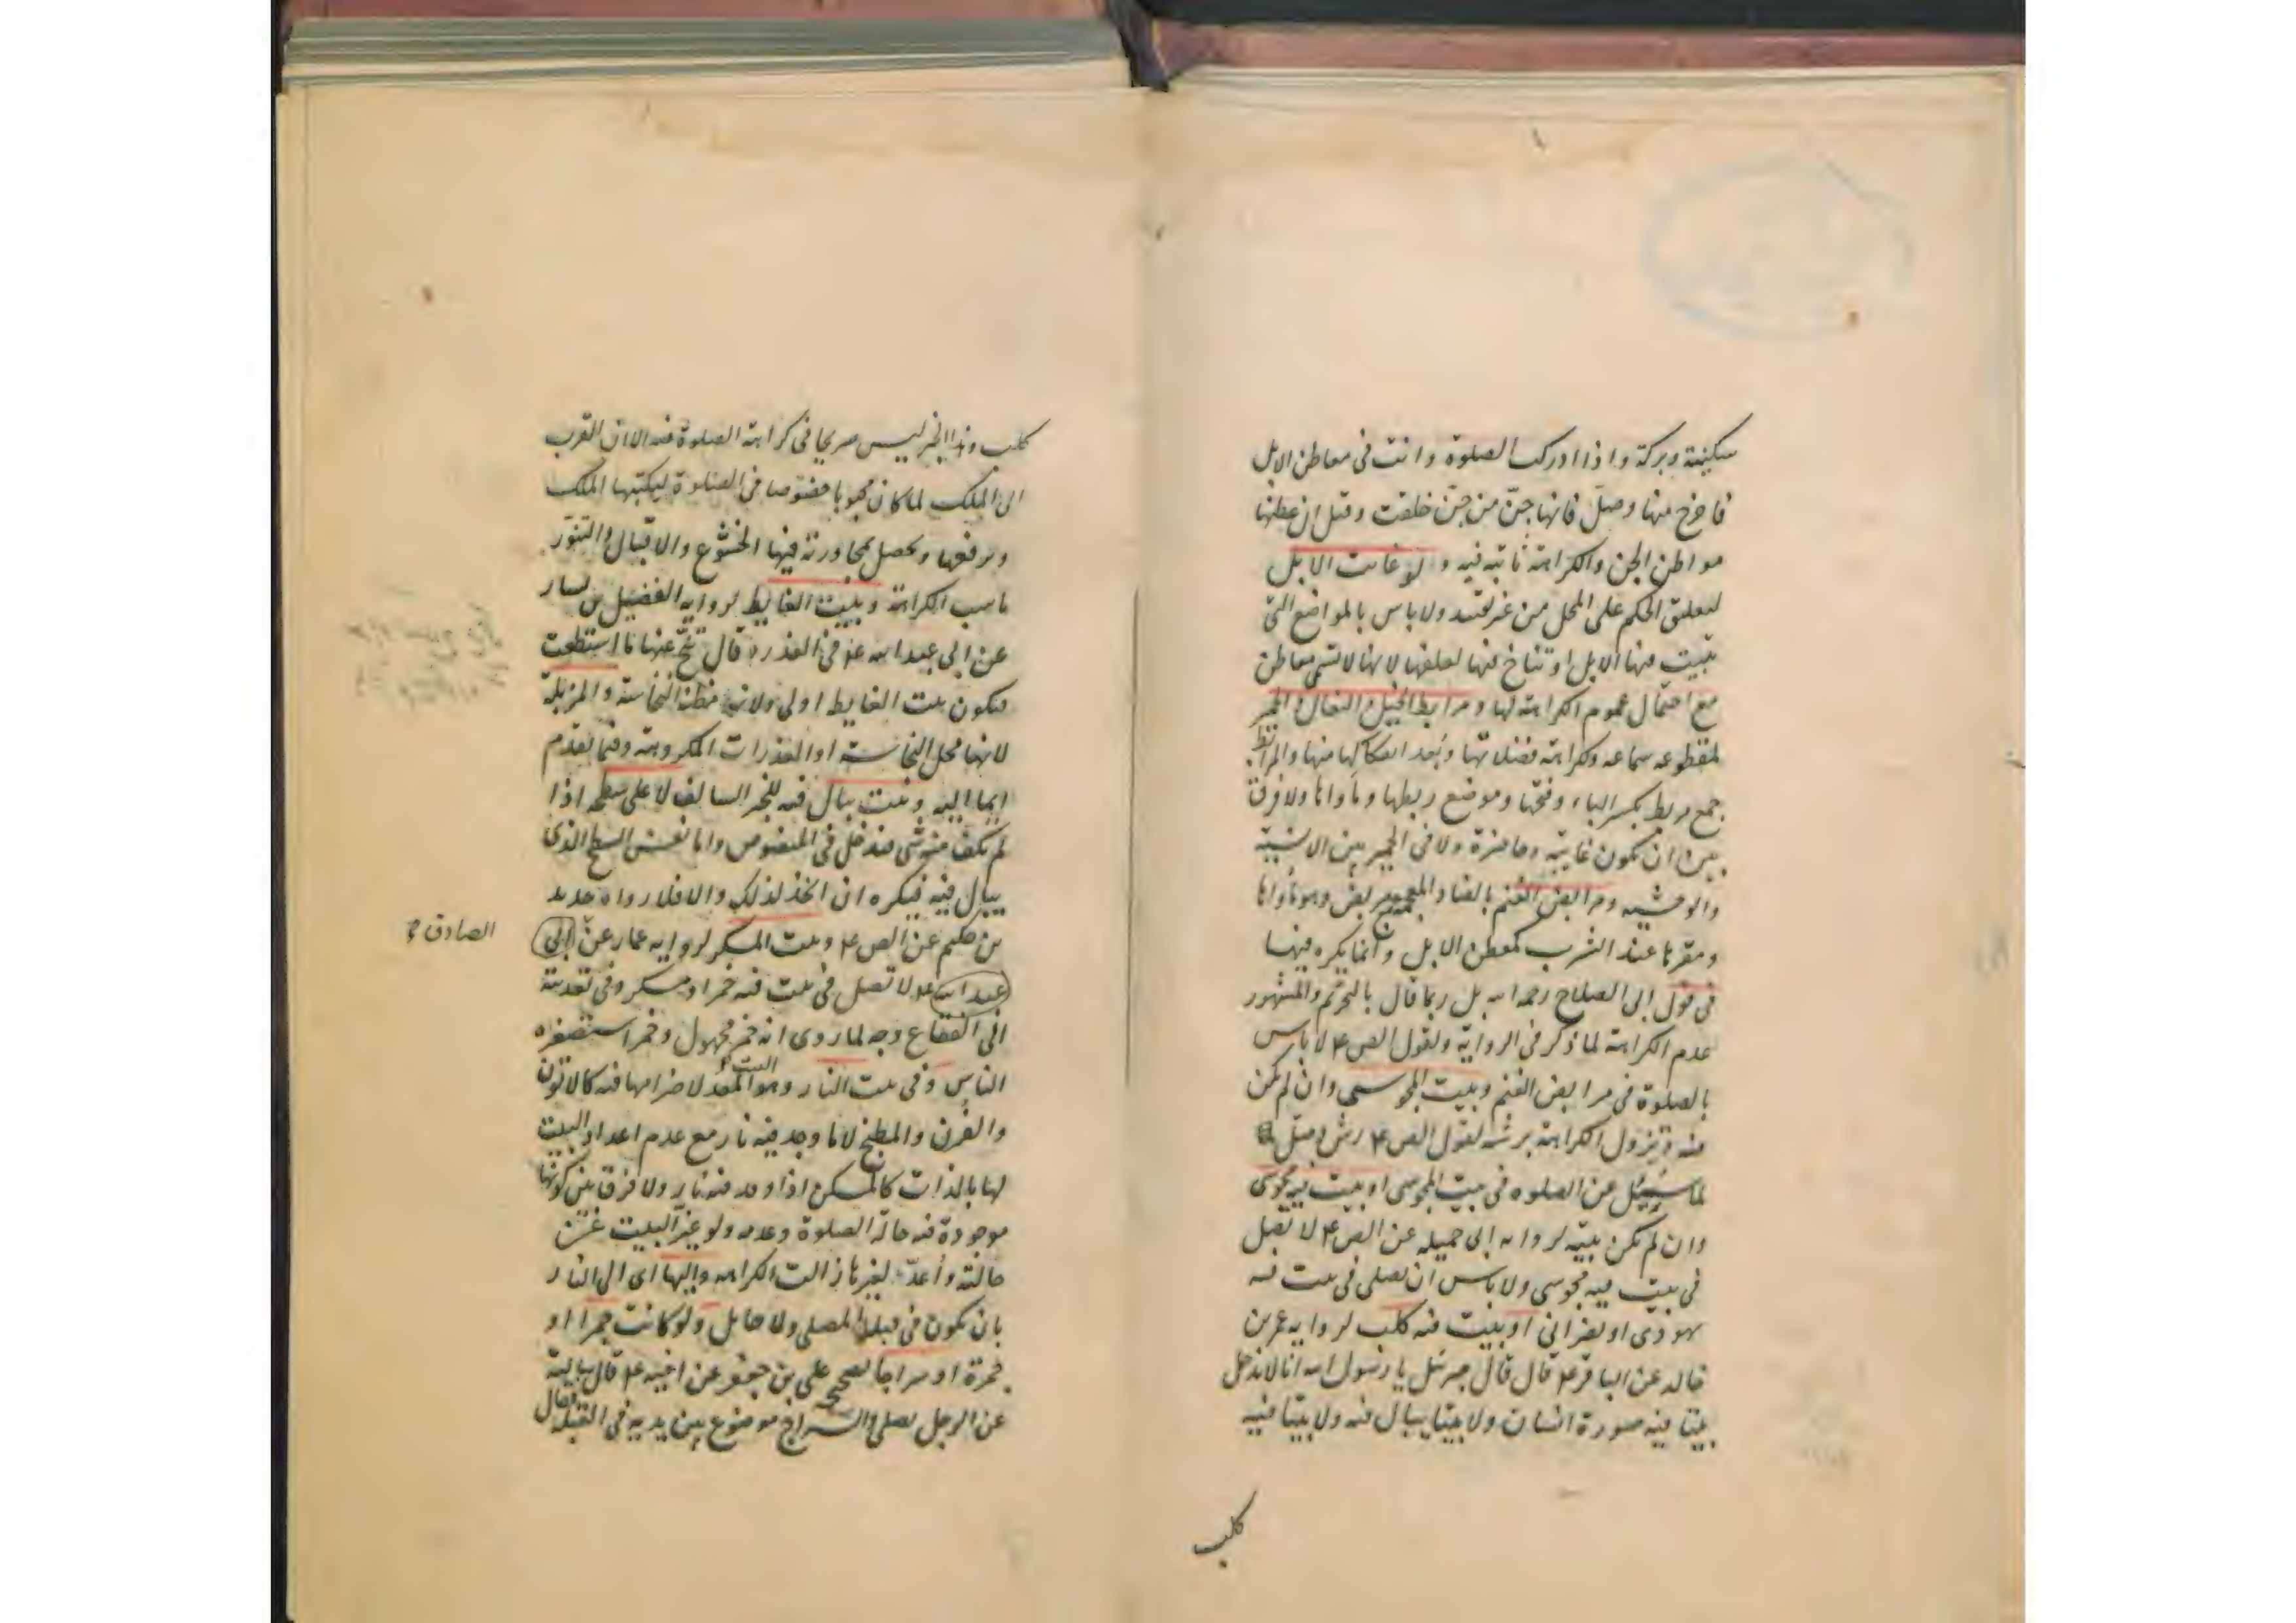 سكينة وبركة واذا ادركت الصلوة وانت فى معاطن الابل
فاخرج منها وصلّ فانها جنّ من جنّ خلقت وقيل ان عطنها
مواطن الجن والكراهة ثابتة فيه ولو غابت الابل
لتعلق الحكم على المحل من غير تقييد ولا باس بالمواضع التى
تبيت فيها الابل او تناخ فيها لعلفها لانها لا تسمى معاطن
مع احتمال عموم الكراهة لها ومرابط الخيل والبغال والحمير
لمقطوعه سماعه وكراهة فضلاتها وبُعد انفكاكها منها والمرابط
جمع مربط بكسر الباء وفتحها وموضع ربطها وماواها ولا فرق
بين ان تكون غايبة وحاضرة ولا فى الحمير بين الانسية
والوحشيه ومرابض الغنم بالضاد المعجمة جمع مربض وهو ماواها
ومقرها عند الشرب كمعطن الابل وانما يكره فيها
فى قول ابى الصلاح رحمه الله بل ربما قال بالتحريم والمشهور
عدم الكراهة لما ذكر فى الرواية ولقول الص ع لا باس
بالصلوة فى مرابض الغنم وبيت المجوسى وان لم يكن
فيه وتزول الكراهة برشه لقول الص ع رش وصلّ
لما سُئِل عن الصلوه فى بيت المجوسى او بيت فيه مجوسى
وان لم يكن بيته لروايه ابى جميله عن الص ع لا تصل
فى بيت فيه مجوسى ولا باس ان تصلى فى بيت فيه
يهودى او نصرانى او بيت فيه كلب لروايه عمر بن
خالد عن الباقر ع قال قال جبرئيل يا رسول الله انا لا ندخل
بيتا فيه صورة انسان ولا بيتا يبال فيه ولا بيتا فيه
كلب
كلب وهذا الخبر ليس صريحا فى كراهة الصلوة فيه الا ان القرب
الى الملك لما كان محبوبا خصوصا فى الصلوة ليكتبها الملك
ويرفعها ويحصل بمجاورته فيها الخشوع والاقبال والتنور
ناسب الكراهة وبيت الغايط لروايه الفضيل بن يسار
عن ابى عبد الله ع فى العذرة قال تنحّ عنها ما استطعت
فيكون بيت الغايط اولى ولانه مظنة النجاسة والمزبلة
لانها محل النجاسة او القذرات المكروهة وفيما تقدم
ايماء اليه وبيت يبال فيه للخبر السالف لا على سطحه اذا
لم يكف منه شى فيدخل فى المنصوص واما نفس السطح الذى
يبال فيه فيكره ان اتخذ لذلك والا فلا رواه حديد
بن حكيم عن الص ع وبيت المسكر لروايه عمار عن ابى
الصادق ع
عبد الله ع لا تصل فى بيت فيه خمر او مسكر وفى تعديته
الى الفقاع وجه لما روى انه خمر مجهول وخمر استصغره
الناس وفى بيت النار وهو البيت المعد لاضرامها فيه كالاتون
والفرن والمطبخ لا ما وجد فيه نار مع عدم اعداد البيت
لها بالذات كالمسكن اذا اوقد فيه نار ولا فرق بين كونها
موجودة فيه حالة الصلوة وعدمه ولو غيّر البيت عن
حالته وأعدّ لغيرها زالت الكراهه واليها اى الى النار
بان تكون فى قبلة المصلى ولا حايل ولو كانت جمرا او
مجمرة او سراجا لصحيحه على بن جعفر عن اخيه ع قال سالته
عن الرجل يصلى والسراج موضوع بين يديه فى القبلة فقال